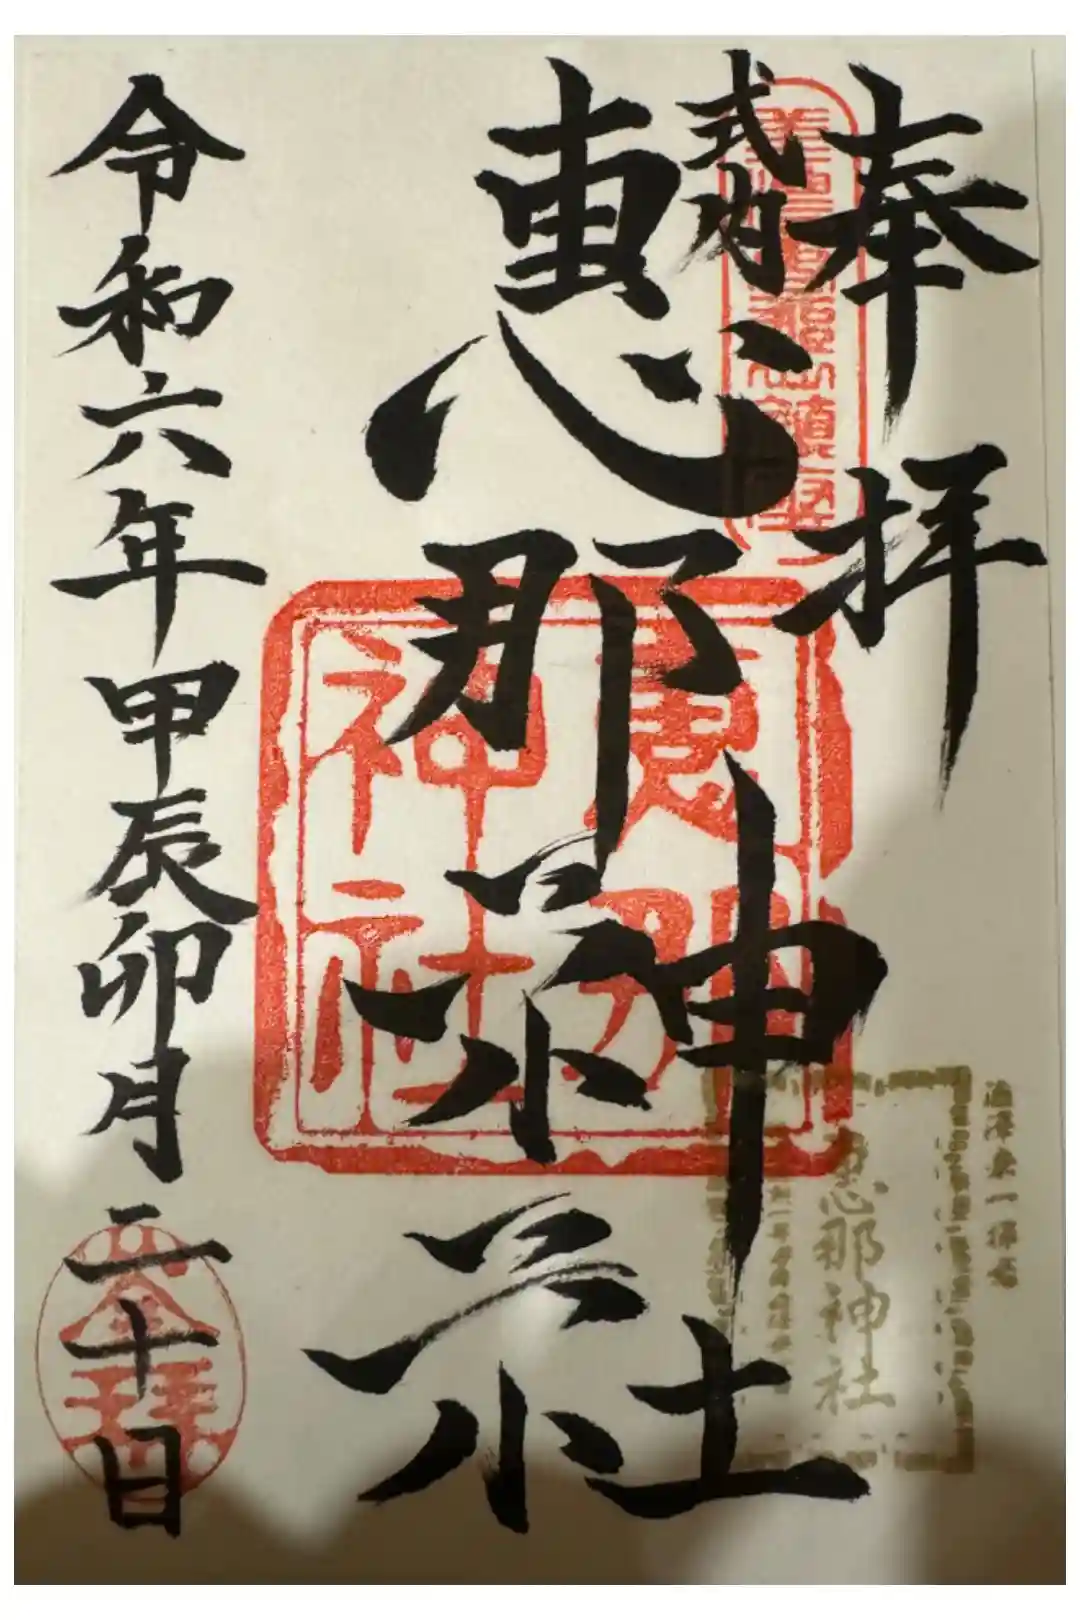 奉拝
式内
恵那神社
令和六年甲辰卯月二十日
恵那神社
恵那神社